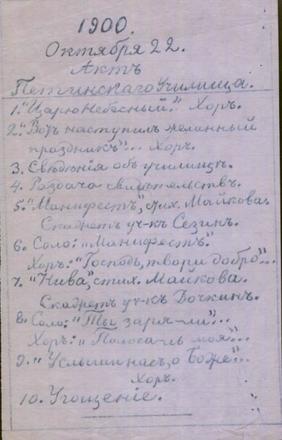 1900.
Октября 22.
Актъ
Петинскаго Училища.
1. "Царю Небесный." Хоръ.
2. "Вотъ наступилъ желанный
праздникъ"... Хоръ.
3. Свѣдѣнія объ училищѣ.
4. Раздача свидѣтельствъ.
5. "Манифестъ", стих. Майкова.
Скажетъ уч-къ Сезин.
6. Соло: "Манифестъ."
Хоръ: "Господь, твори добро"...
7. "Нива", стих. Майкова.
Скажетъ уч-къ Бочкинъ.
8. Соло: "Ты заря-ли"...
Хоръ: "Полоса-ль моя"...
9. "Услыши насъ, о Боже"...
Хоръ.
10. Угощеніе.